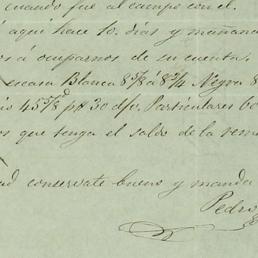 cuando fué al campo con el.
í aquí hace 10. dias y mañana
os á ocuparnos de su cuenta.
escasa Blanca 8 5/8 á 8 3/4 Negra 8
45 7/8 p% 30 d/v. Particulares 60
os que tenga el saldo de la reme
ad conservate bueno y manda
Pedro